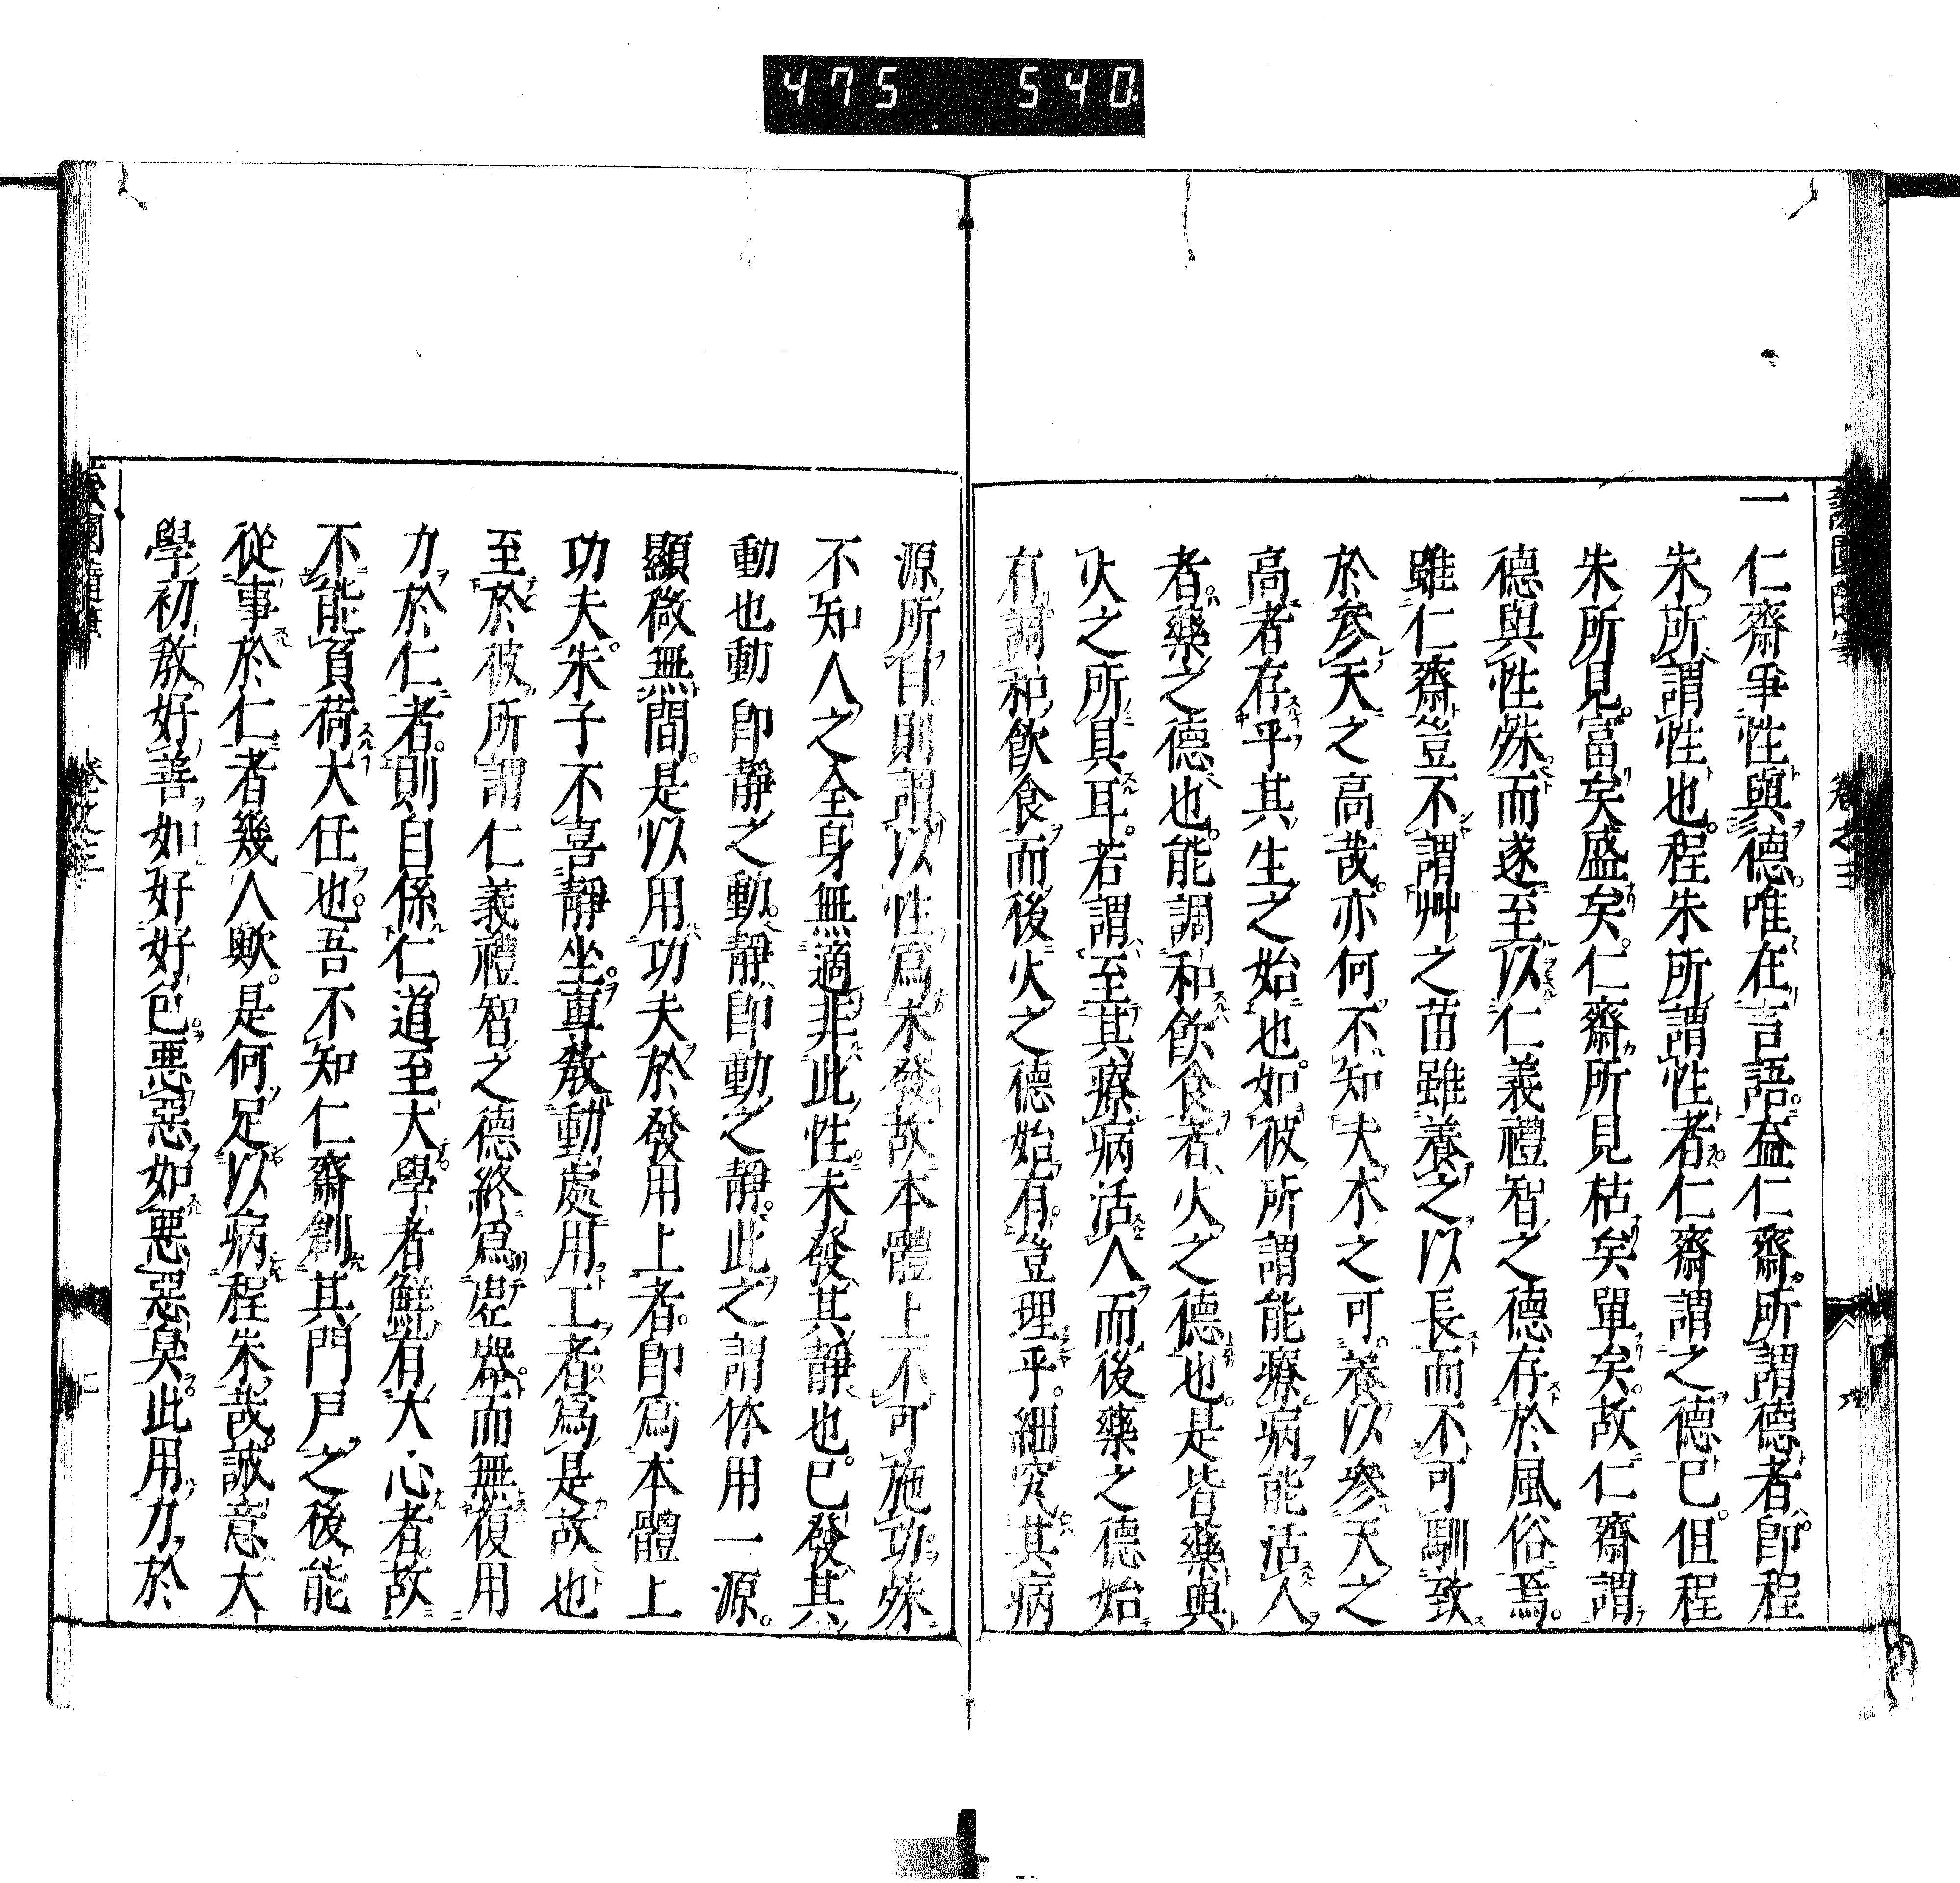 475 540
一仁齋爭性與德。唯在言語。益仁齋所謂德者。卽程
朱所謂性也。程朱所謂性者。仁齋謂之德已。但程
朱所見。富矣盛矣。仁齋所見枯矣單矣。故仁齋謂
德與性殊。而遂至以仁義禮智之德存於風俗焉。
雖仁齋豈不謂艸之苗雖養之以長而不可馴致
於參天之高哉。亦何不知夫木之可養以參天之
高者存乎其生之始也。如彼所謂能療病能活人
者。藥之德也。能調和飲食者、火之德也。是皆藥與
火之所具耳。若謂至其療病活人而後藥之德始
有調和飲食而後火之德始有。豈理乎。細究其病
源所自。則謂以性爲未發。故本體上不可施功。殊
不知人之全身無適非此性。未發其靜也。已發其
動也動卽靜之動。靜卽動之靜。此之謂体用一源。
顯微無間。是以用功夫於發用上者。卽爲本體上
功夫。朱子不喜靜坐。專敎動處用工者。爲是故也
至於彼所謂仁義禮智之德終爲虛器。而無復用
力於仁者。則自係仁道至大學者鮮有大心者。故
不能負荷大任也。吾不知仁齋創其門戸之後能
從事於仁者幾人歟。是何足以病程朱哉。誠意大
學初敎。好善如好好色。惡惡如惡惡臭。此用力於
卷之三